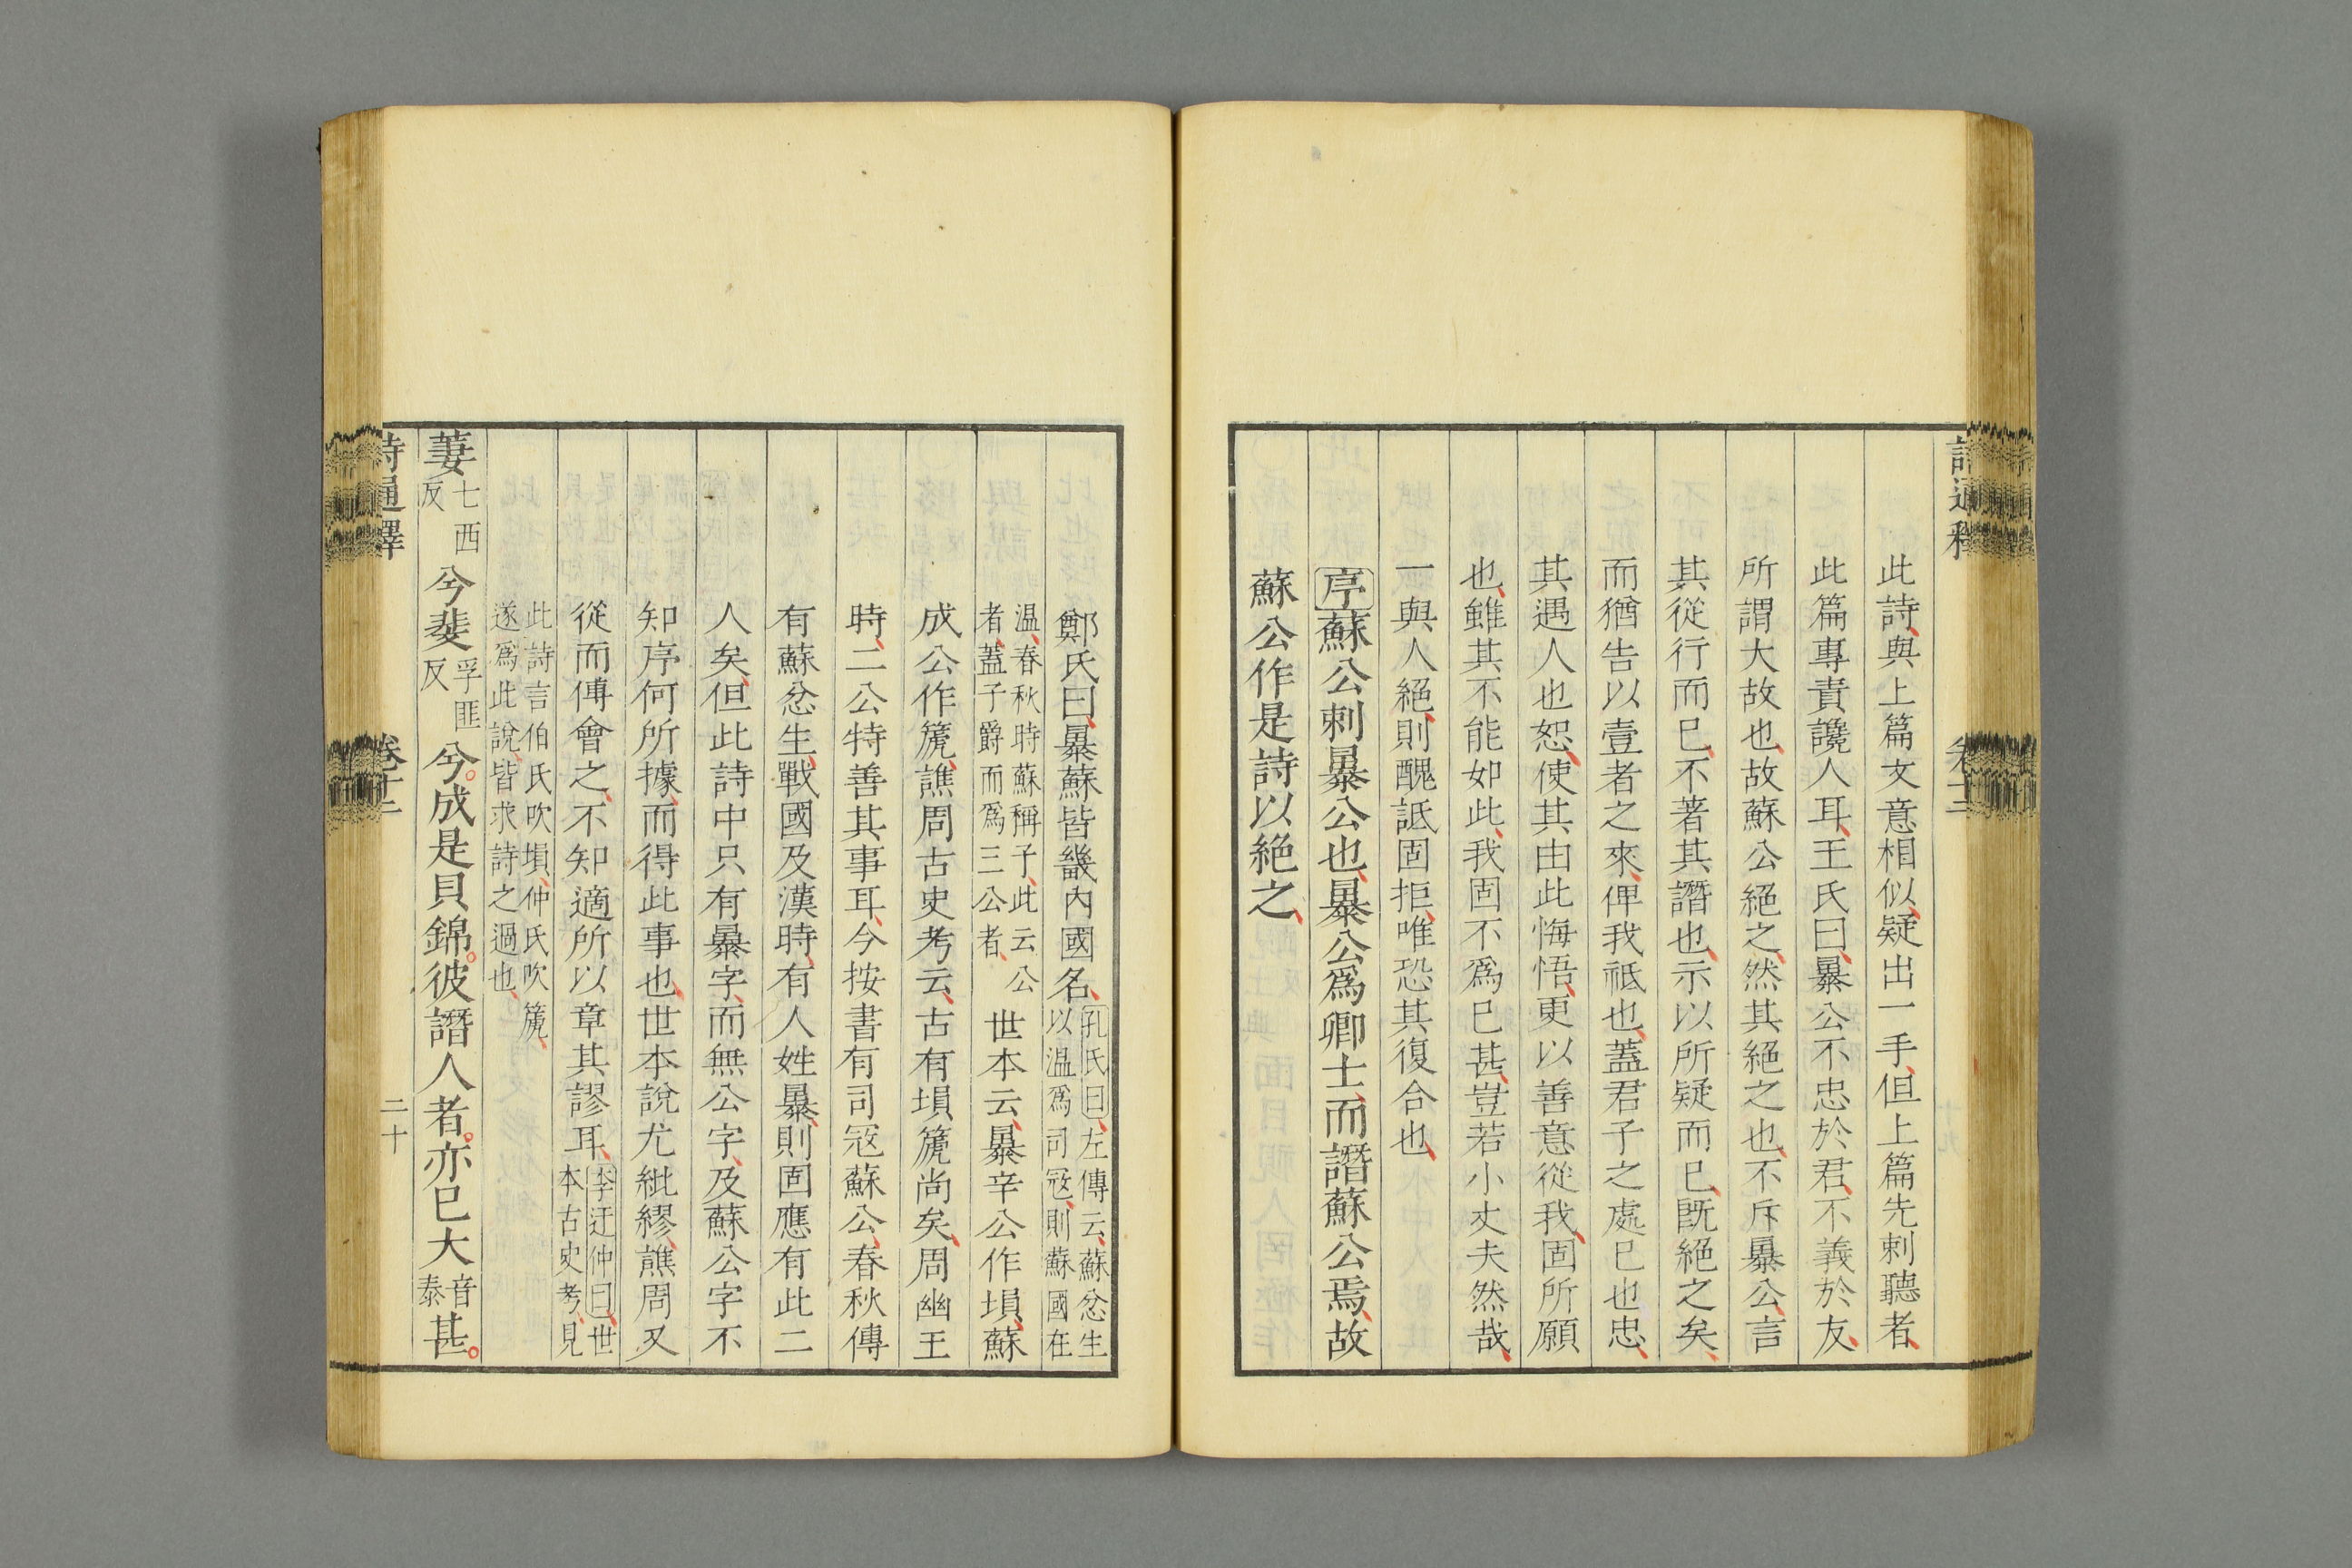 詩通釋 卷十二
此詩與上篇文意相似疑出一手但上篇先刺聽者
此篇專責讒人耳王氏曰暴公不忠於君不義於友
所謂大故也故蘇公絕之然其絕之也不斥暴公言
其從行而已不著其譖也示以所疑而已既絕之矣
而猶告以壹者之來俾我祗也蓋君子之處已也忠
其遇人也恕使其由此悔悟更以善意從我固所願
也雖其不能如此我固不爲已甚豈若小丈夫然哉
一與人絕則醜詆固拒唯恐其復合也
序蘇公刺暴公也暴公爲卿士而譖蘇公焉故
蘇公作是詩以絕之
鄭氏曰暴蘇皆畿內國名孔氏曰左傳云蘇忿生以溫爲司冦則蘇國在
溫春秋時蘇稱子此云公者蓋子爵而爲三公者世本云暴辛公作塤蘇
成公作篪譙周古史考云古有塤篪尚矣周幽王
時二公特善其事耳今按書有司冦蘇公春秋傳
有蘇忿生戰國及漢時有人姓暴則固應有此二
人矣但此詩中只有暴字而無公字及蘇公字不
知序何所據而得此事也世本說尤紕繆譙周又
從而傅會之不知適所以章其謬耳李迂仲曰世本古史考見
此詩言伯氏吹塤仲氏吹篪遂爲此說皆求詩之過也
萋七西反兮斐孚匪反兮成是貝錦彼譖人者亦已大音泰甚
詩通釋 卷十二 二十